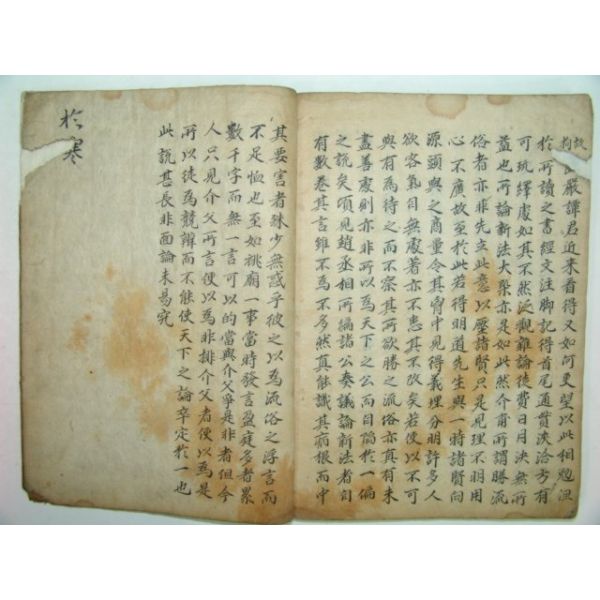 嚴譚君近來看得又如何更望以此相勉
於所讀之書經文注脚記得首尾通貫浹洽方有
可玩繹處如其不然泛觀雜論徒費日月決無所
益也所論新法大槩亦是如此然介甫所謂勝流
俗者亦非先立此意以壓諸賢只是見理不明用
心不廣故至於此若得明道先生與一時諸賢向
源頭與之商量令其胷中見得義理分明許多人
欲客氣自無處著亦不患其不改矣若便以不可
與有為待之而不察其所欲勝之流俗亦真有未
盡善處則亦非所以為天下之公而自陷於一偏
之説矣頃見趙丞相所編諸公奏議論新法者自
有數卷其言雖不為不多然真能識其病根而中
其要害者殊少無惑乎彼之以為流俗之浮言而
不足恤也至如祧廟一事當時發言盈庭多者累
數千字而無一言可以的當與介父爭是非者但今
人只見介父所言便以為非排介父者便以為是
所以徒為競辯而不能使天下之論卒定於一也
此説甚長非面論未易究
於寒